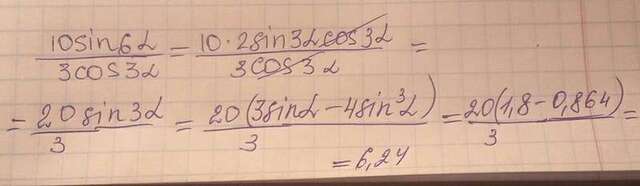 10sin6α/3cos3α = 10·2sin3αcos3α/3cos3α =
= 20sin3α/3 = 20(3sinα−4sin³α)/3 = 20(1,8−0,864)/3 =
= 6,24